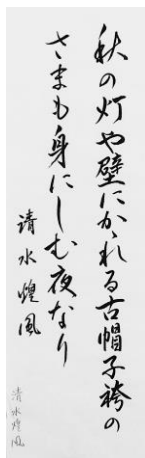 秋の灯や壁にかゝれる古帽子袴の
さまも身にしむ夜なり
清水煌風
清水煌風